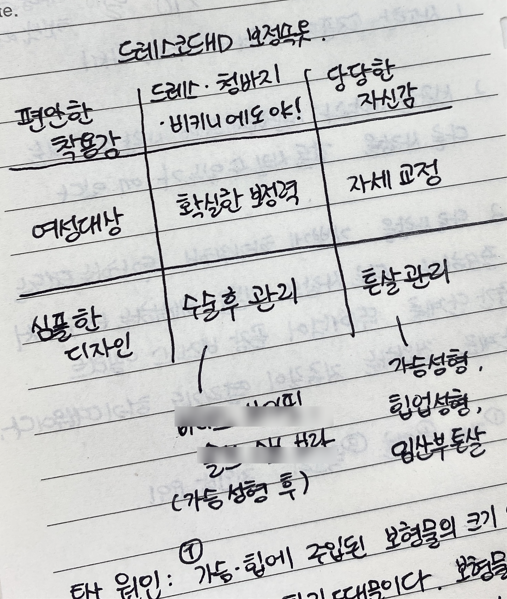 te.
드레스코드HD 보정속옷!
편안한
착용감
드레스·청바지
·비키니에도 야!
당당한
자신감
여성대상
확실한 보정력
자세 교정
심플한
디자인
수술후 관리
튼살관리
(가능성형 후)
가능성형,
힙업성형,
임산부튼살
원인: ① 가능·힙에 주입된 보형물의 크기
때문이다. 보형물